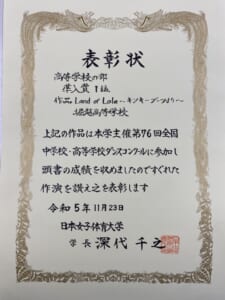 表彰状
高等学校の部
準入賞 1組
作品 Land of Lola ～キンキーブーツより～
堀越高等学校
上記の作品は本学主催第76回全国
中学校・高等学校ダンスコンクールに参加し
頭書の成績を収めましたのですぐれた
作演を讃えこれを表彰します
令和5年11月23日
日本女子体育大学
学長 深代千之